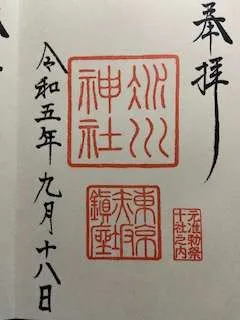 奉拝
氷川
神社
元准勅祭
十社之内
東京
赤坂
鎮座
令和五年九月十八日